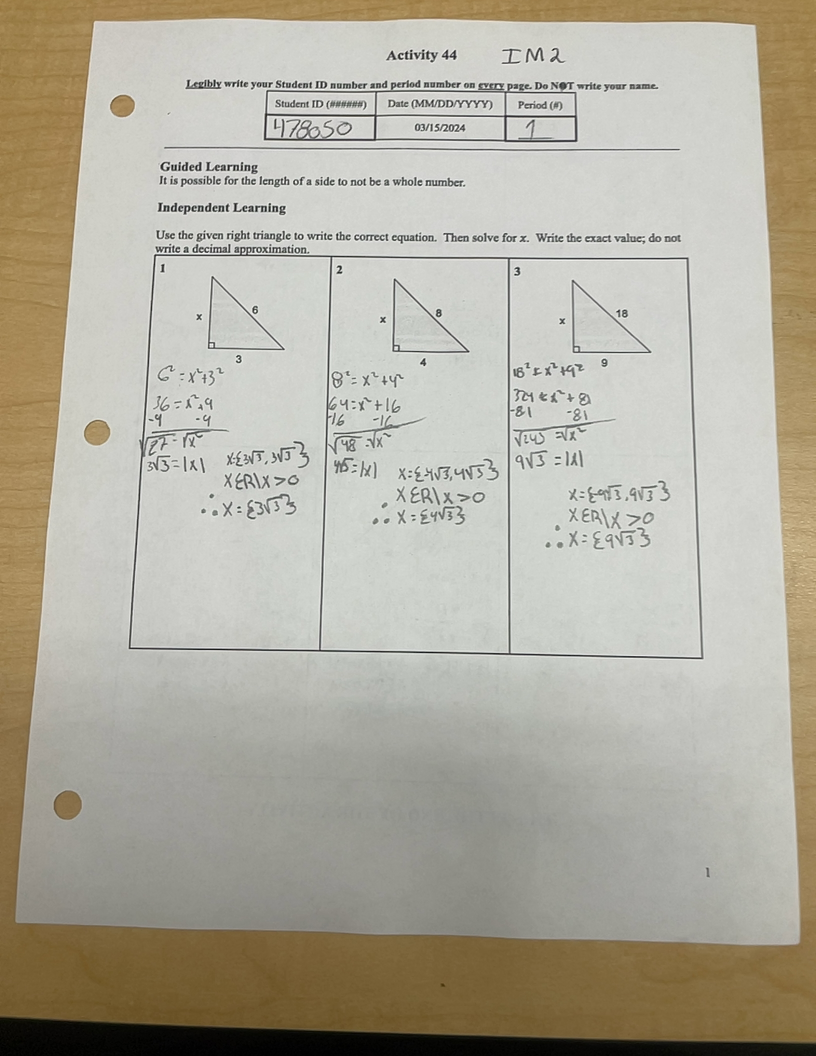 Activity 44 IM2
Legibly write your Student ID number and period number on every page. Do NOT write your name.
Student ID (######) Date (MM/DD/YYYY) Period (#)
478050 03/15/2024 1
Guided Learning
It is possible for the length of a side to not be a whole number.
Independent Learning
Use the given right triangle to write the correct equation. Then solve for x. Write the exact value; do not
write a decimal approximation.
1
x
6
3
6² = x²+3²
36 = x²+9
-9 -9
√27 = √x²
3√3 = |x| x={3√3, 3√3}
xεR\x>0
∴ x = {3√3}
2
x
8
4
8² = x²+4²
64 = x²+16
-16 -16
√48 = √x²
4√3 = |x| x={-4√3, 4√3}
xεR\x>0
∴ x = {4√3}
3
x
18
9
18² = x²+9²
324 = x²+81
-81 -81
√243 = √x²
9√3 = |x|
x={-9√3, 9√3}
xεR\x>0
∴ x = {9√3}
1